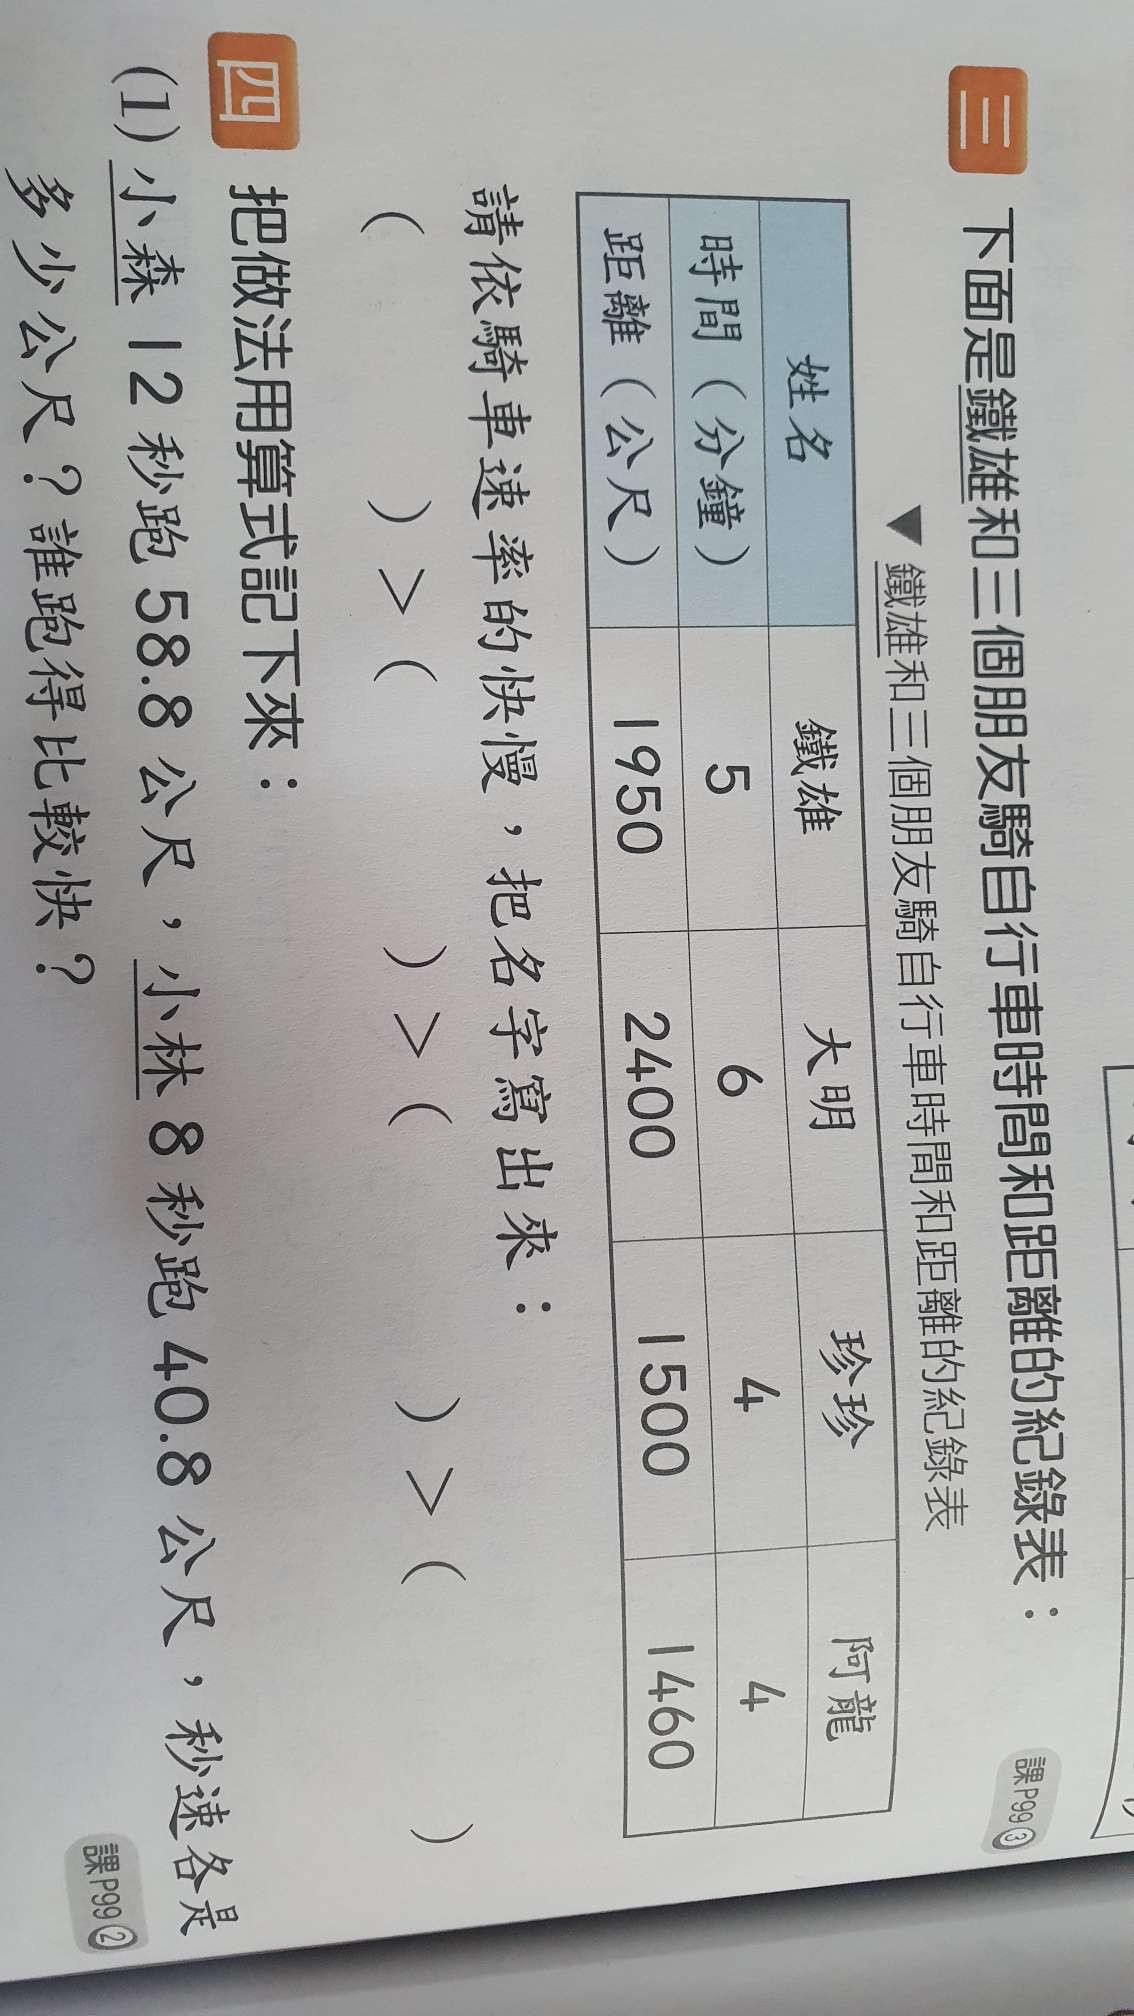 三 下面是鐵雄和三個朋友騎自行車時間和距離的紀錄表： 課P99③
▼鐵雄和三個朋友騎自行車時間和距離的紀錄表
姓名 鐵雄 大明 珍珍 阿龍
時間（分鐘） 5 6 4 4
距離（公尺） 1950 2400 1500 1460
請依騎車速率的快慢，把名字寫出來：
（ ）＞（ ）＞（ ）＞（ ）
四 把做法用算式記下來：
(1) 小森 12 秒跑 58.8 公尺，小林 8 秒跑 40.8 公尺，秒速各是
多少公尺？誰跑得比較快？ 課P99②